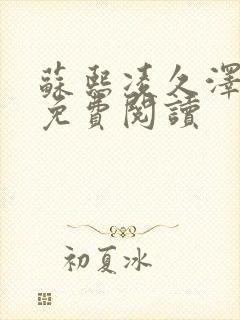 蘇熙凌久澤
免費閱讀
初夏冰